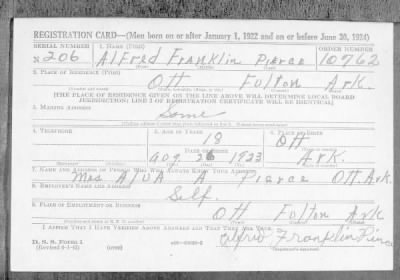 REGISTRATION CARD—(Men born on or after January 1, 1922 and on or before June 30, 1924)
SERIAL NUMBER 1. NAME (Print) ORDER NUMBER
N 206 Alfred Franklin Pierce 10762
2. PLACE OF RESIDENCE (Print)
Ott Fulton Ark.
[THE PLACE OF RESIDENCE GIVEN ON THE LINE ABOVE WILL DETERMINE LOCAL BOARD
JURISDICTION; LINE 2 OF REGISTRATION CERTIFICATE WILL BE IDENTICAL]
3. MAILING ADDRESS
Same
4. TELEPHONE 5. AGE IN YEARS 6. PLACE OF BIRTH
18 Ott
DATE OF BIRTH
Aug. 26 1923 Ark.
7. NAME AND ADDRESS OF PERSON WHO WILL ALWAYS KNOW YOUR ADDRESS
Mrs. Pierce Ott. Ark.
8. EMPLOYER'S NAME AND ADDRESS
Self.
9. PLACE OF EMPLOYMENT OR BUSINESS
Ott Fulton Ark
I AFFIRM THAT I HAVE VERIFIED ABOVE ANSWERS AND THAT THEY ARE TRUE.
D. S. S. Form 1
Franklin